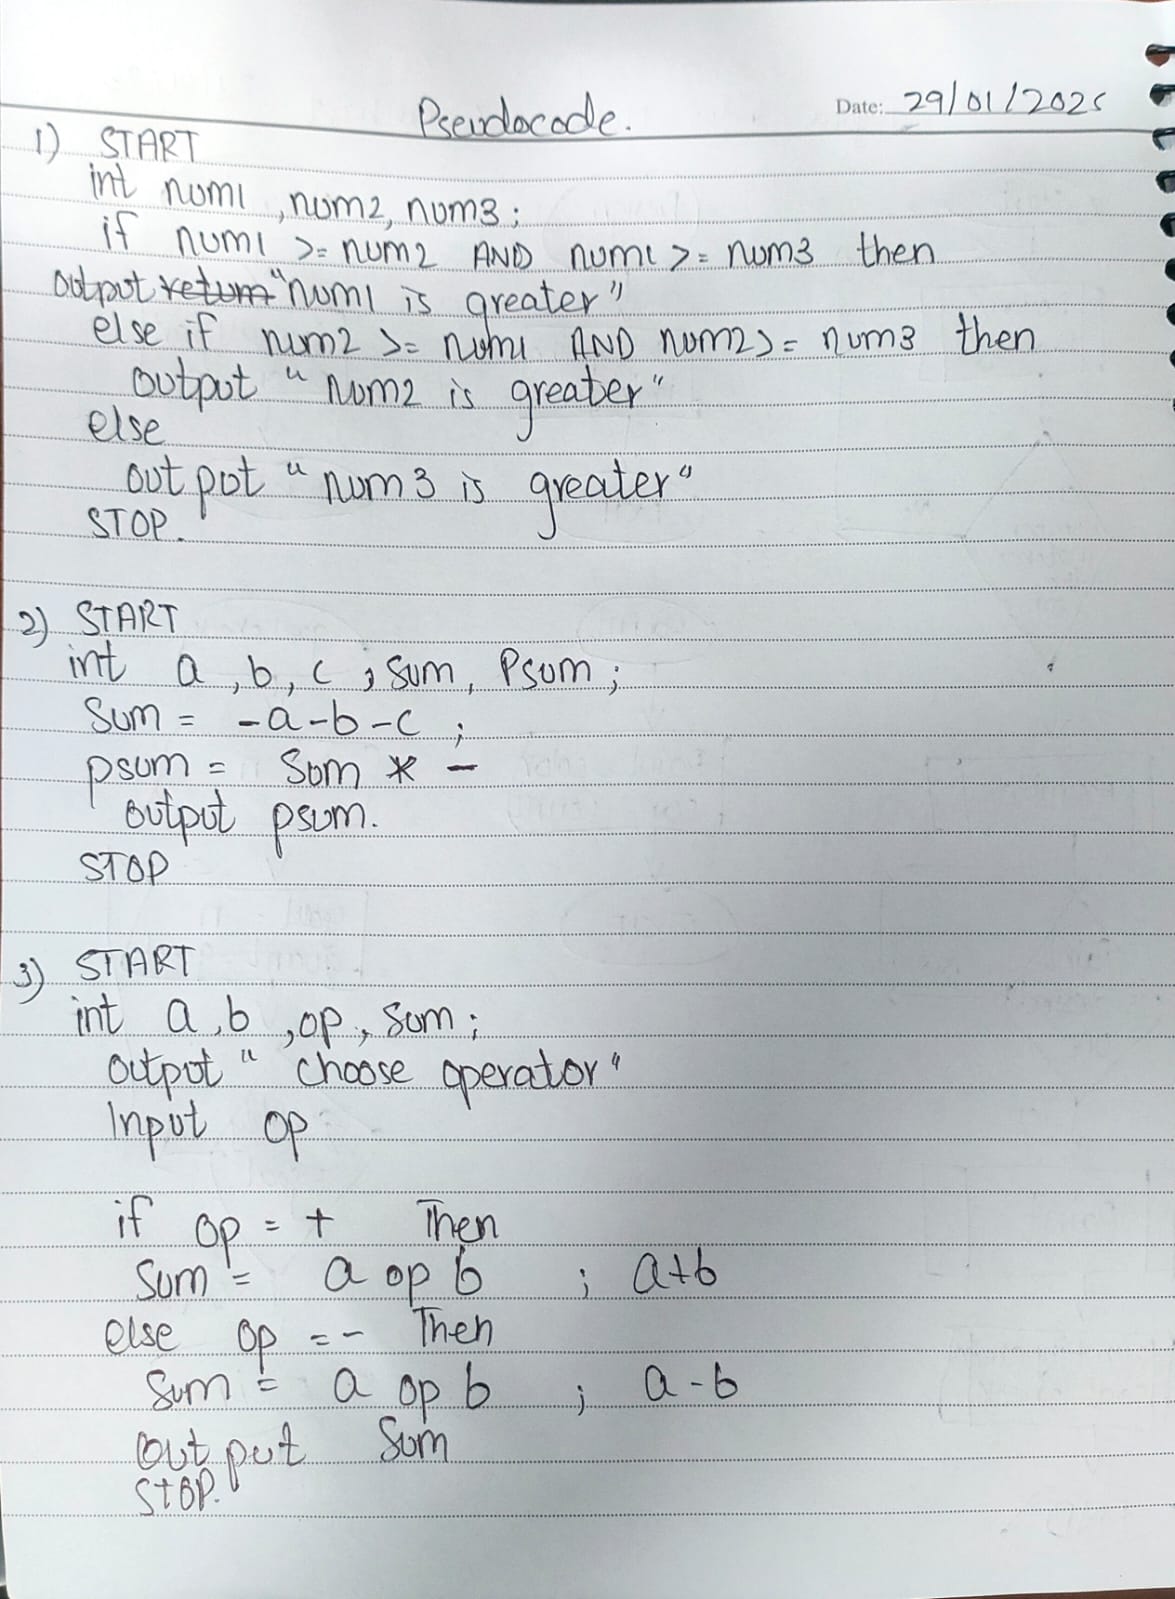 Pseudocode.
Date: 29/01/2025
1) START
int num1, num2, num3;
if num1 >= num2 AND num1 >= num3 then
output return "num1 is greater"
else if num2 >= num1 AND num2 >= num3 then
output "num2 is greater"
else
output "num3 is greater"
STOP.
2) START
int a, b, c, sum, Psum;
Sum = -a-b-c ;
psum = Sum * -
output psum.
STOP
3) START
int a, b, op, sum;
output "choose operator"
Input op
if op = + Then
Sum = a op b ; a+b
else op = - Then
Sum = a op b ; a-b
output Sum
STOP.